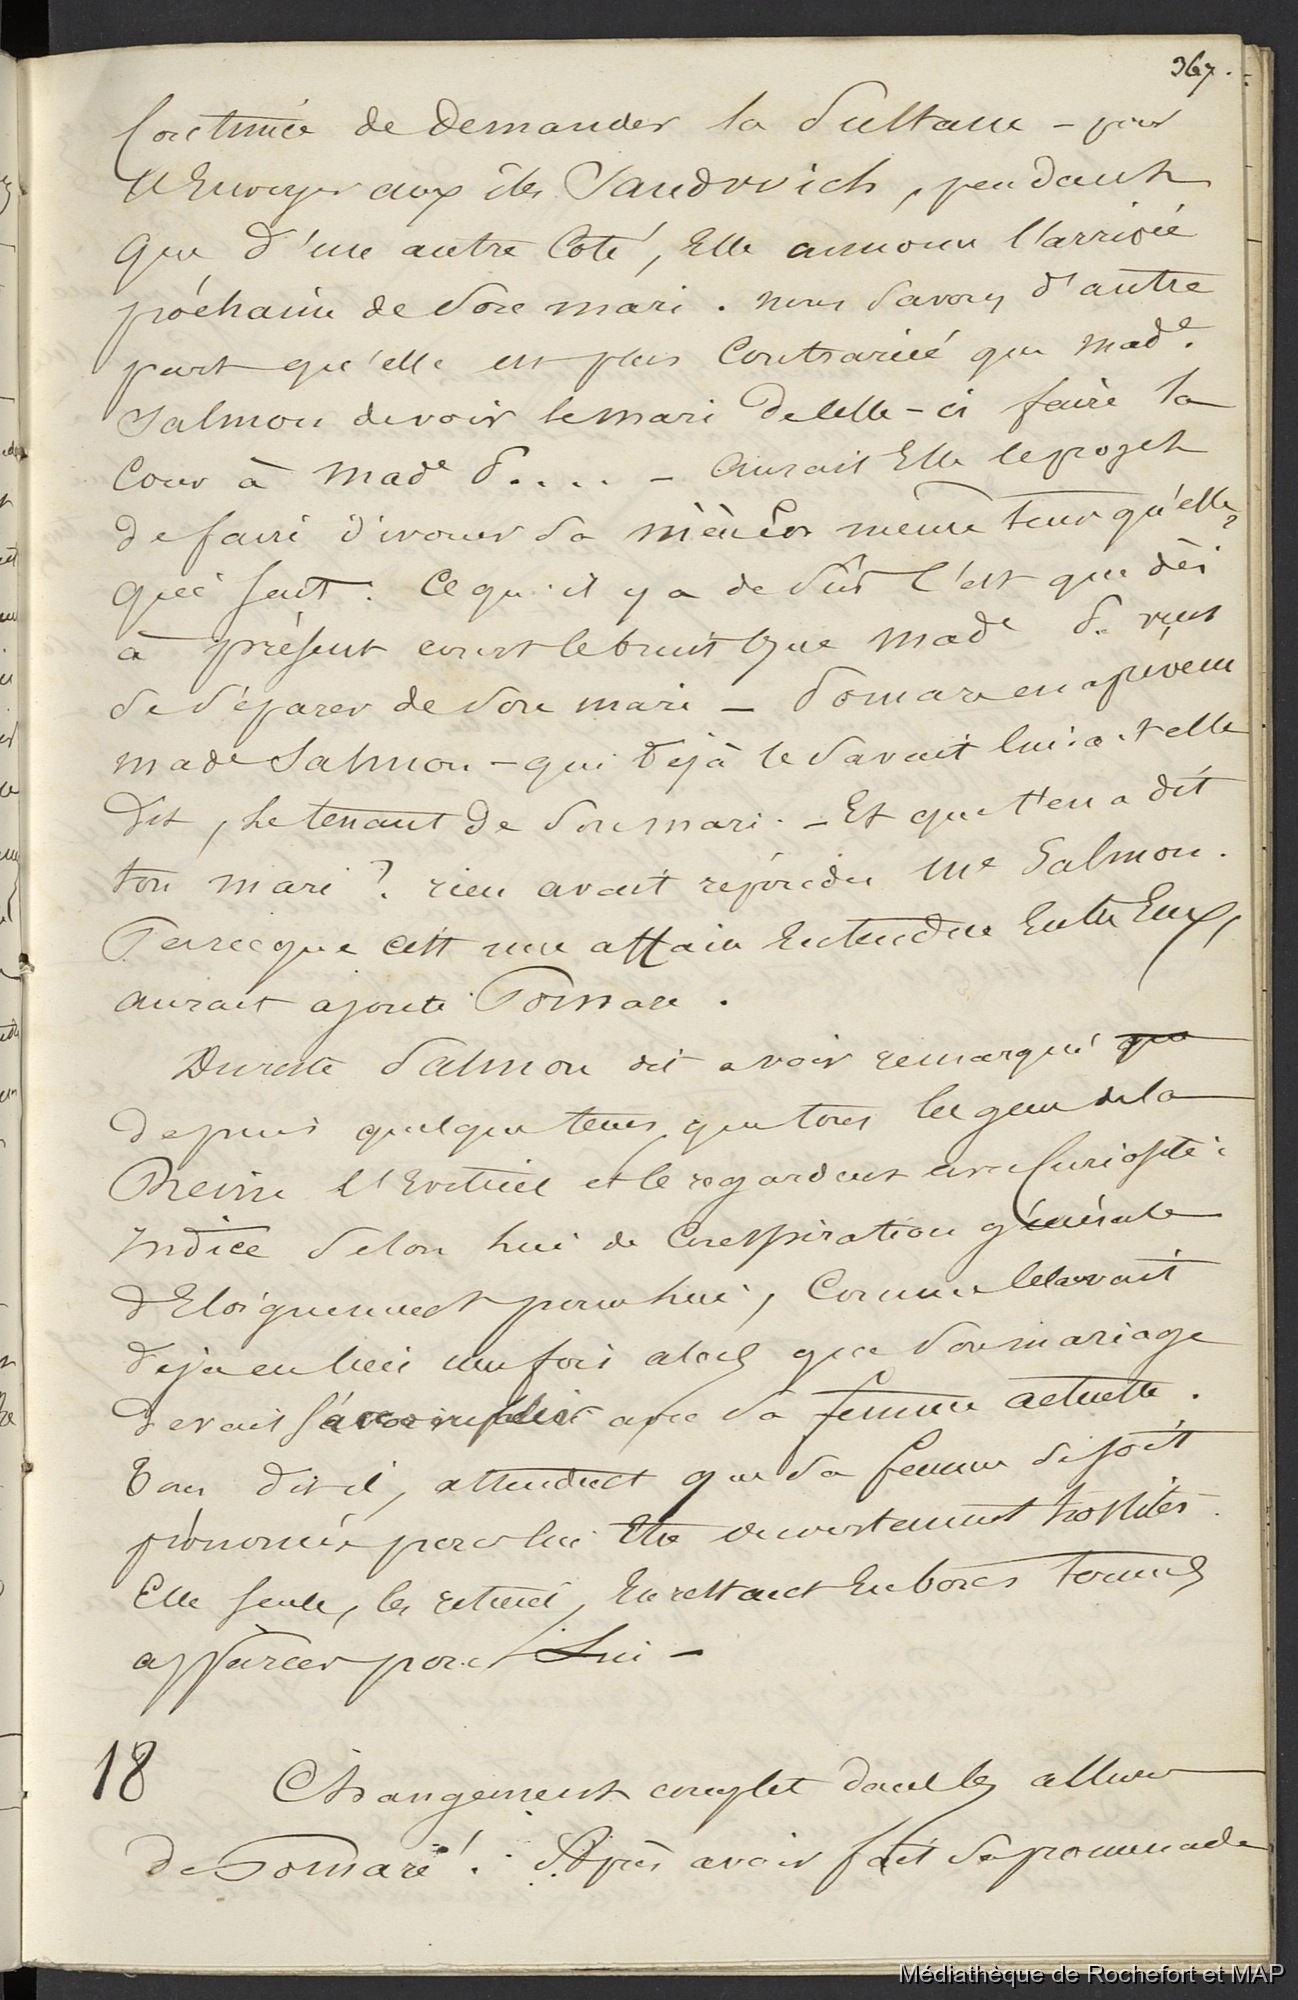 367.
Continue de Demander la Sultane - pour
l'Envoyer aux îles Sandwich, pendant
que d'une autre Coté, Elle annonce l'arrivée
prochaine de Son mari. nous Savons d'autre
part qu'elle est plus Contrariée que Made.
Salmon devoir lemari decelle-ci faire la
Cour à Made S.... - Aurait Elle leprojet
de faire divorcer Sa nièce en meme tems qu'elle
Ce qu'il y a de Sûr C'est que dès
à présent court lebruit que Made S. veut
Se Séparer de Son mari - Pomare en a prevenu
made Salmon - qui déjà le Savait lui a t elle
dit, le tenant de Son mari. - Et que t'en a dit
ton mari? rien avait répondu Me Salmon.
Parceque cest une affaire Entendue Entre Eux,
aurait ajouté Pomare.
Dureste Salmon dit avoir remarqué que
depuis quelque tems que tous les gens dela
Reine l'Evitent et le regardent avec Curiosité:
Indice Selon lui de Conspiration générale
d'Eloignement pour lui, Comme Celaavait
déja eu lieu une fois alors que Son mariage
devait S'accomplir avec Sa femme actuelle.
Tous dit il, attendent que Sa femme Se Soit
prononcée pour lui Etre ouvertement hostiles.
Elle Seule, les retient, En restant En bons termes
apparens pour Lui -
18 Changement complet dans les allures
de Pomaré! Après avoir fait Sa promenade
Médiathèque de Rochefort et MAP